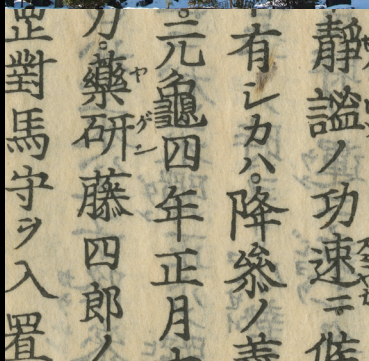 靜謐ノ功速ニ
有シカハ。降參ノ
。元龜四年正月
刀。藥研藤四郎ノ
對馬守ヲ入置